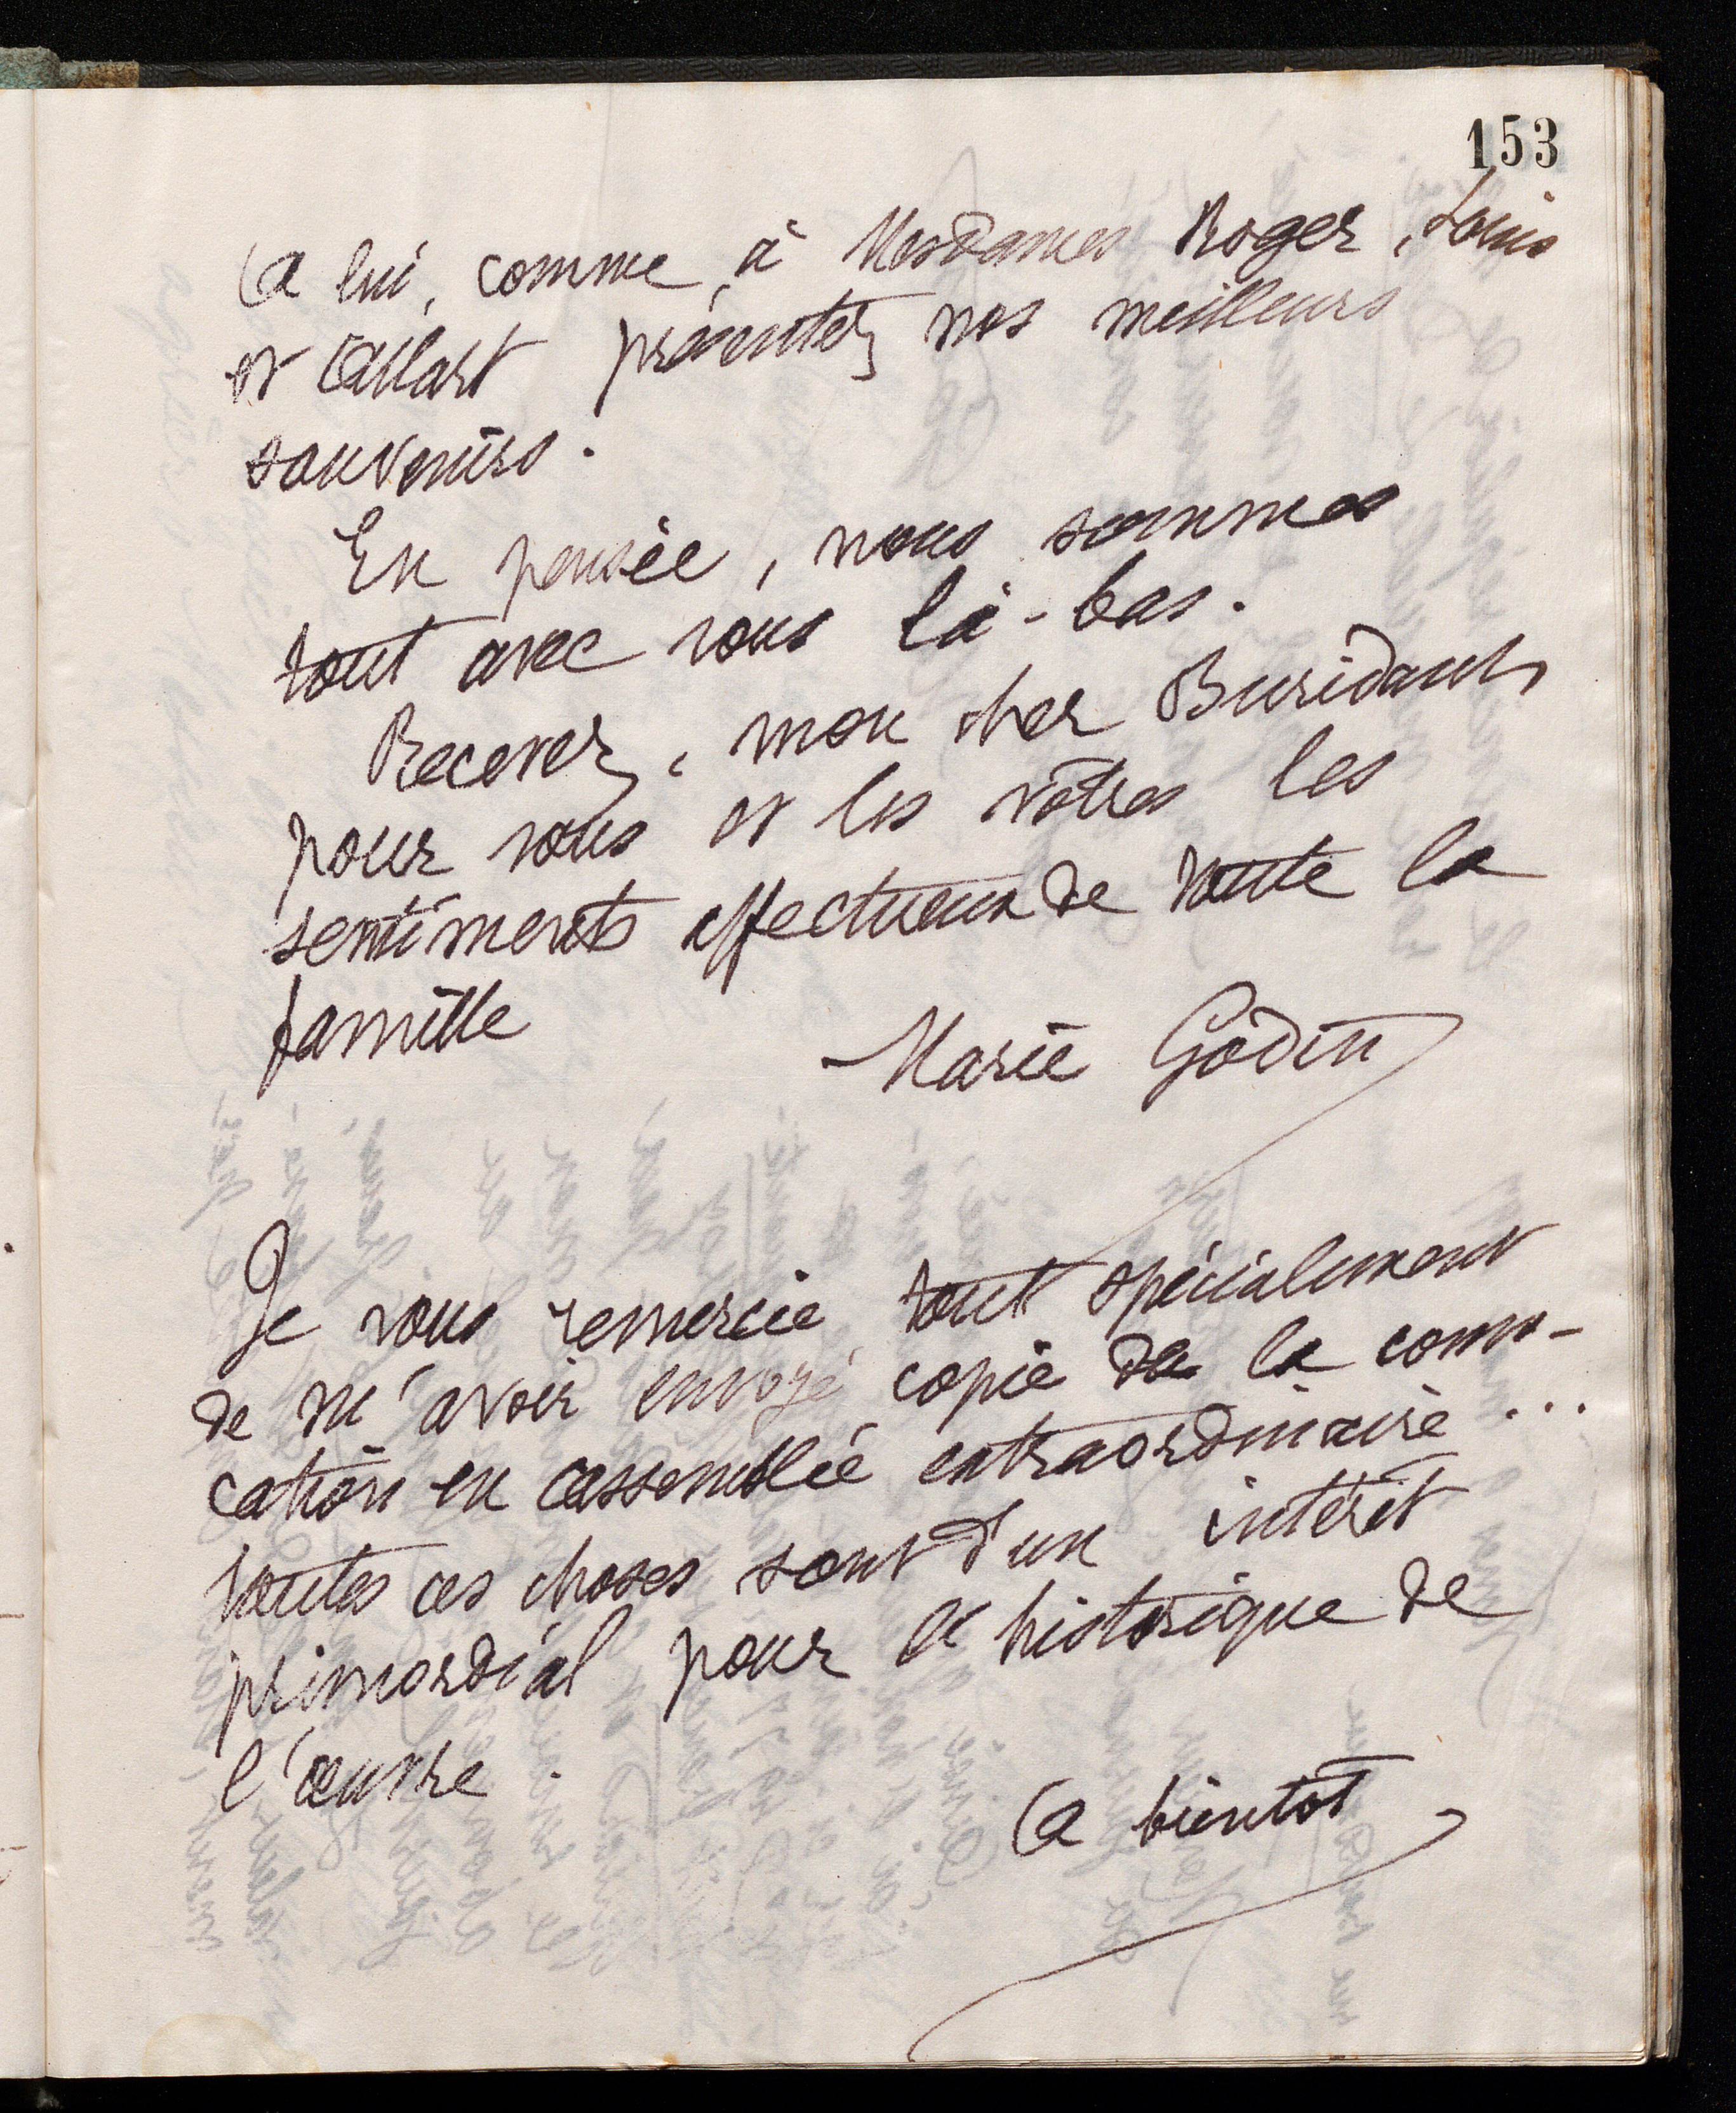 153
A lui, comme à Mesdames Roger, Louis
et Allart présentez nos meilleurs
souvenirs.
En pensée, nous sommes
tout avec vous là-bas.
Recevez, mon cher Buridant,
pour vous et les vôtres les
sentiments affectueux de toute la
famille
Marie Godin
Je vous remercie tout spécialement
de m'avoir envoyé copie de la conv-
cation en assemblée extraordinaire...
toutes ces choses sont d'un intérêt
primordial pour l'historique de
l'œuvre.
A bientot